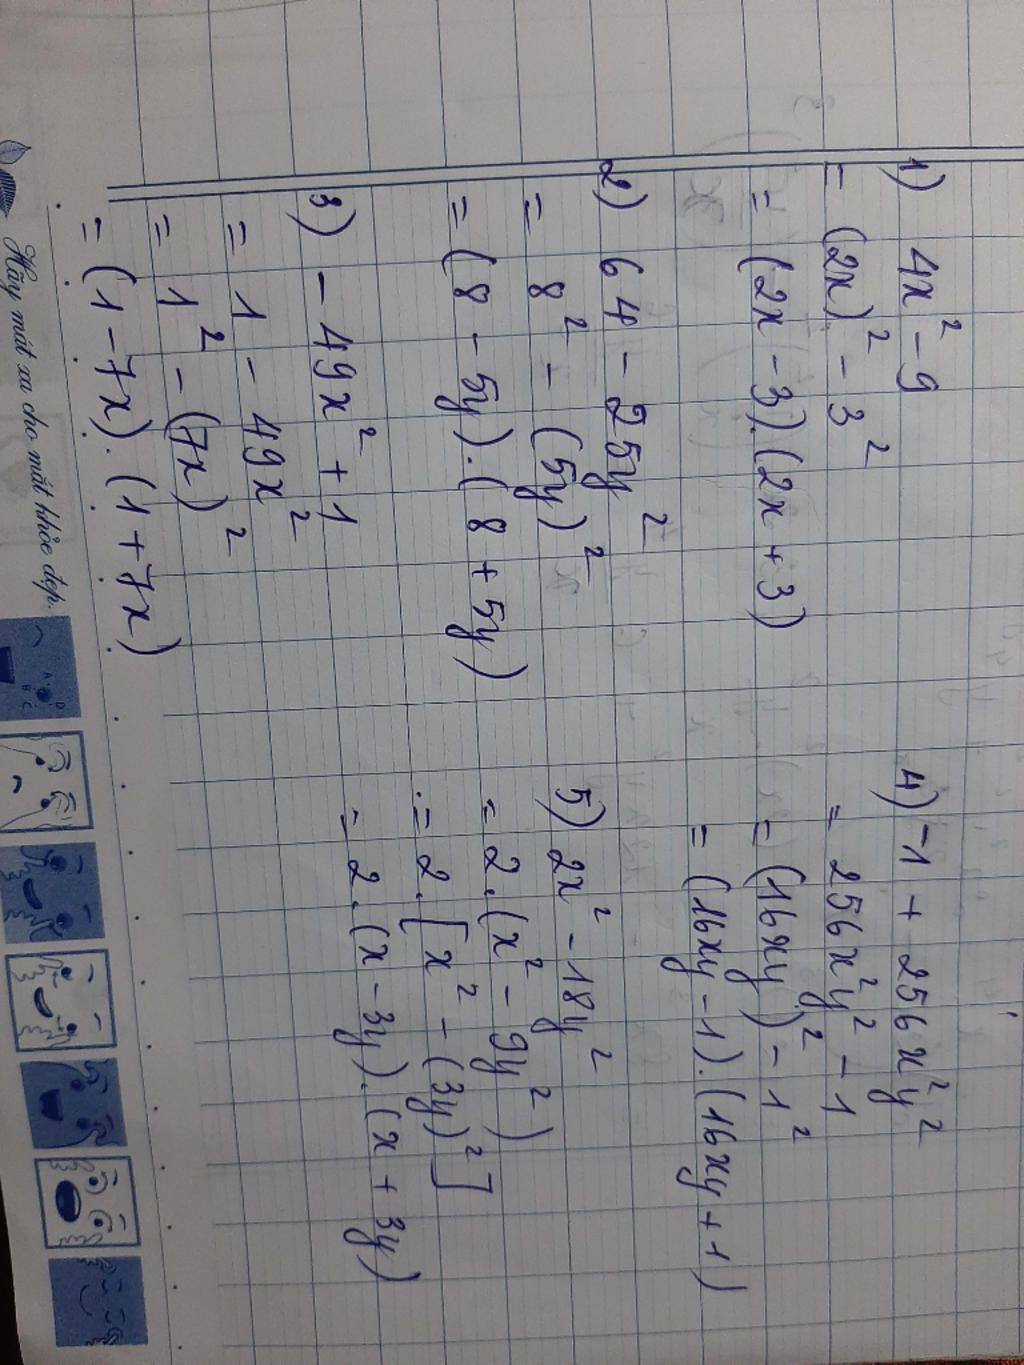 1) 4x² - 9
= (2x)² - 3²
= (2x - 3).(2x + 3)
2) 64 - 25y²
= 8² - (5y)²
= (8 - 5y).(8 + 5y)
3) - 49x² + 1
= 1 - 49x²
= 1² - (7x)²
= (1 - 7x).(1 + 7x)
4) -1 + 256x²y²
= 256x²y² - 1
= (16xy)² - 1²
= (16xy - 1).(16xy + 1)
5) 2x² - 18y²
= 2.(x² - 9y²)
= 2.[x² - (3y)²]
= 2.(x - 3y).(x + 3y)
Hãy mát xa cho mắt khỏe đẹp.